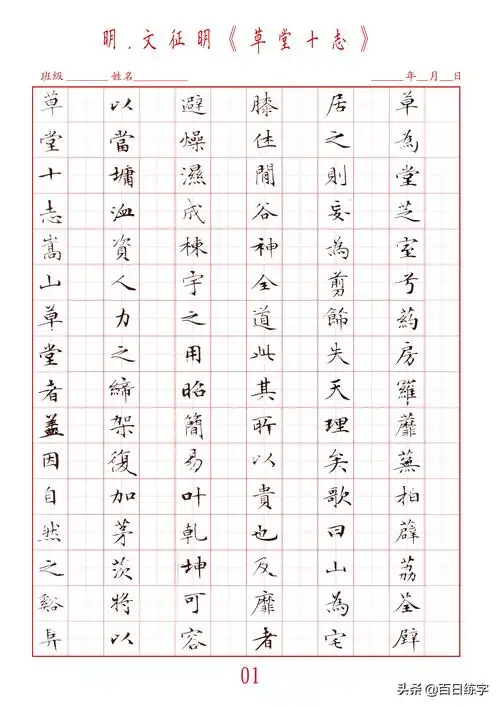 明.文征明《草堂十志》
班級______ 姓名______ ____年__月__日
草堂十志嵩山草堂者盖因自然之谿阜
以當墉洫資人力之締架復加茅茨將以
避燥濕成棟宇之用昭簡易叶乾坤可容
膝休閒谷神全道此其所以貴也及靡者
居之則妄為剪飾失天理矣歌曰山為宅
草為堂芝室兮葯房羅蘼蕪拍薜荔荃壁
01
头条 @百日练字